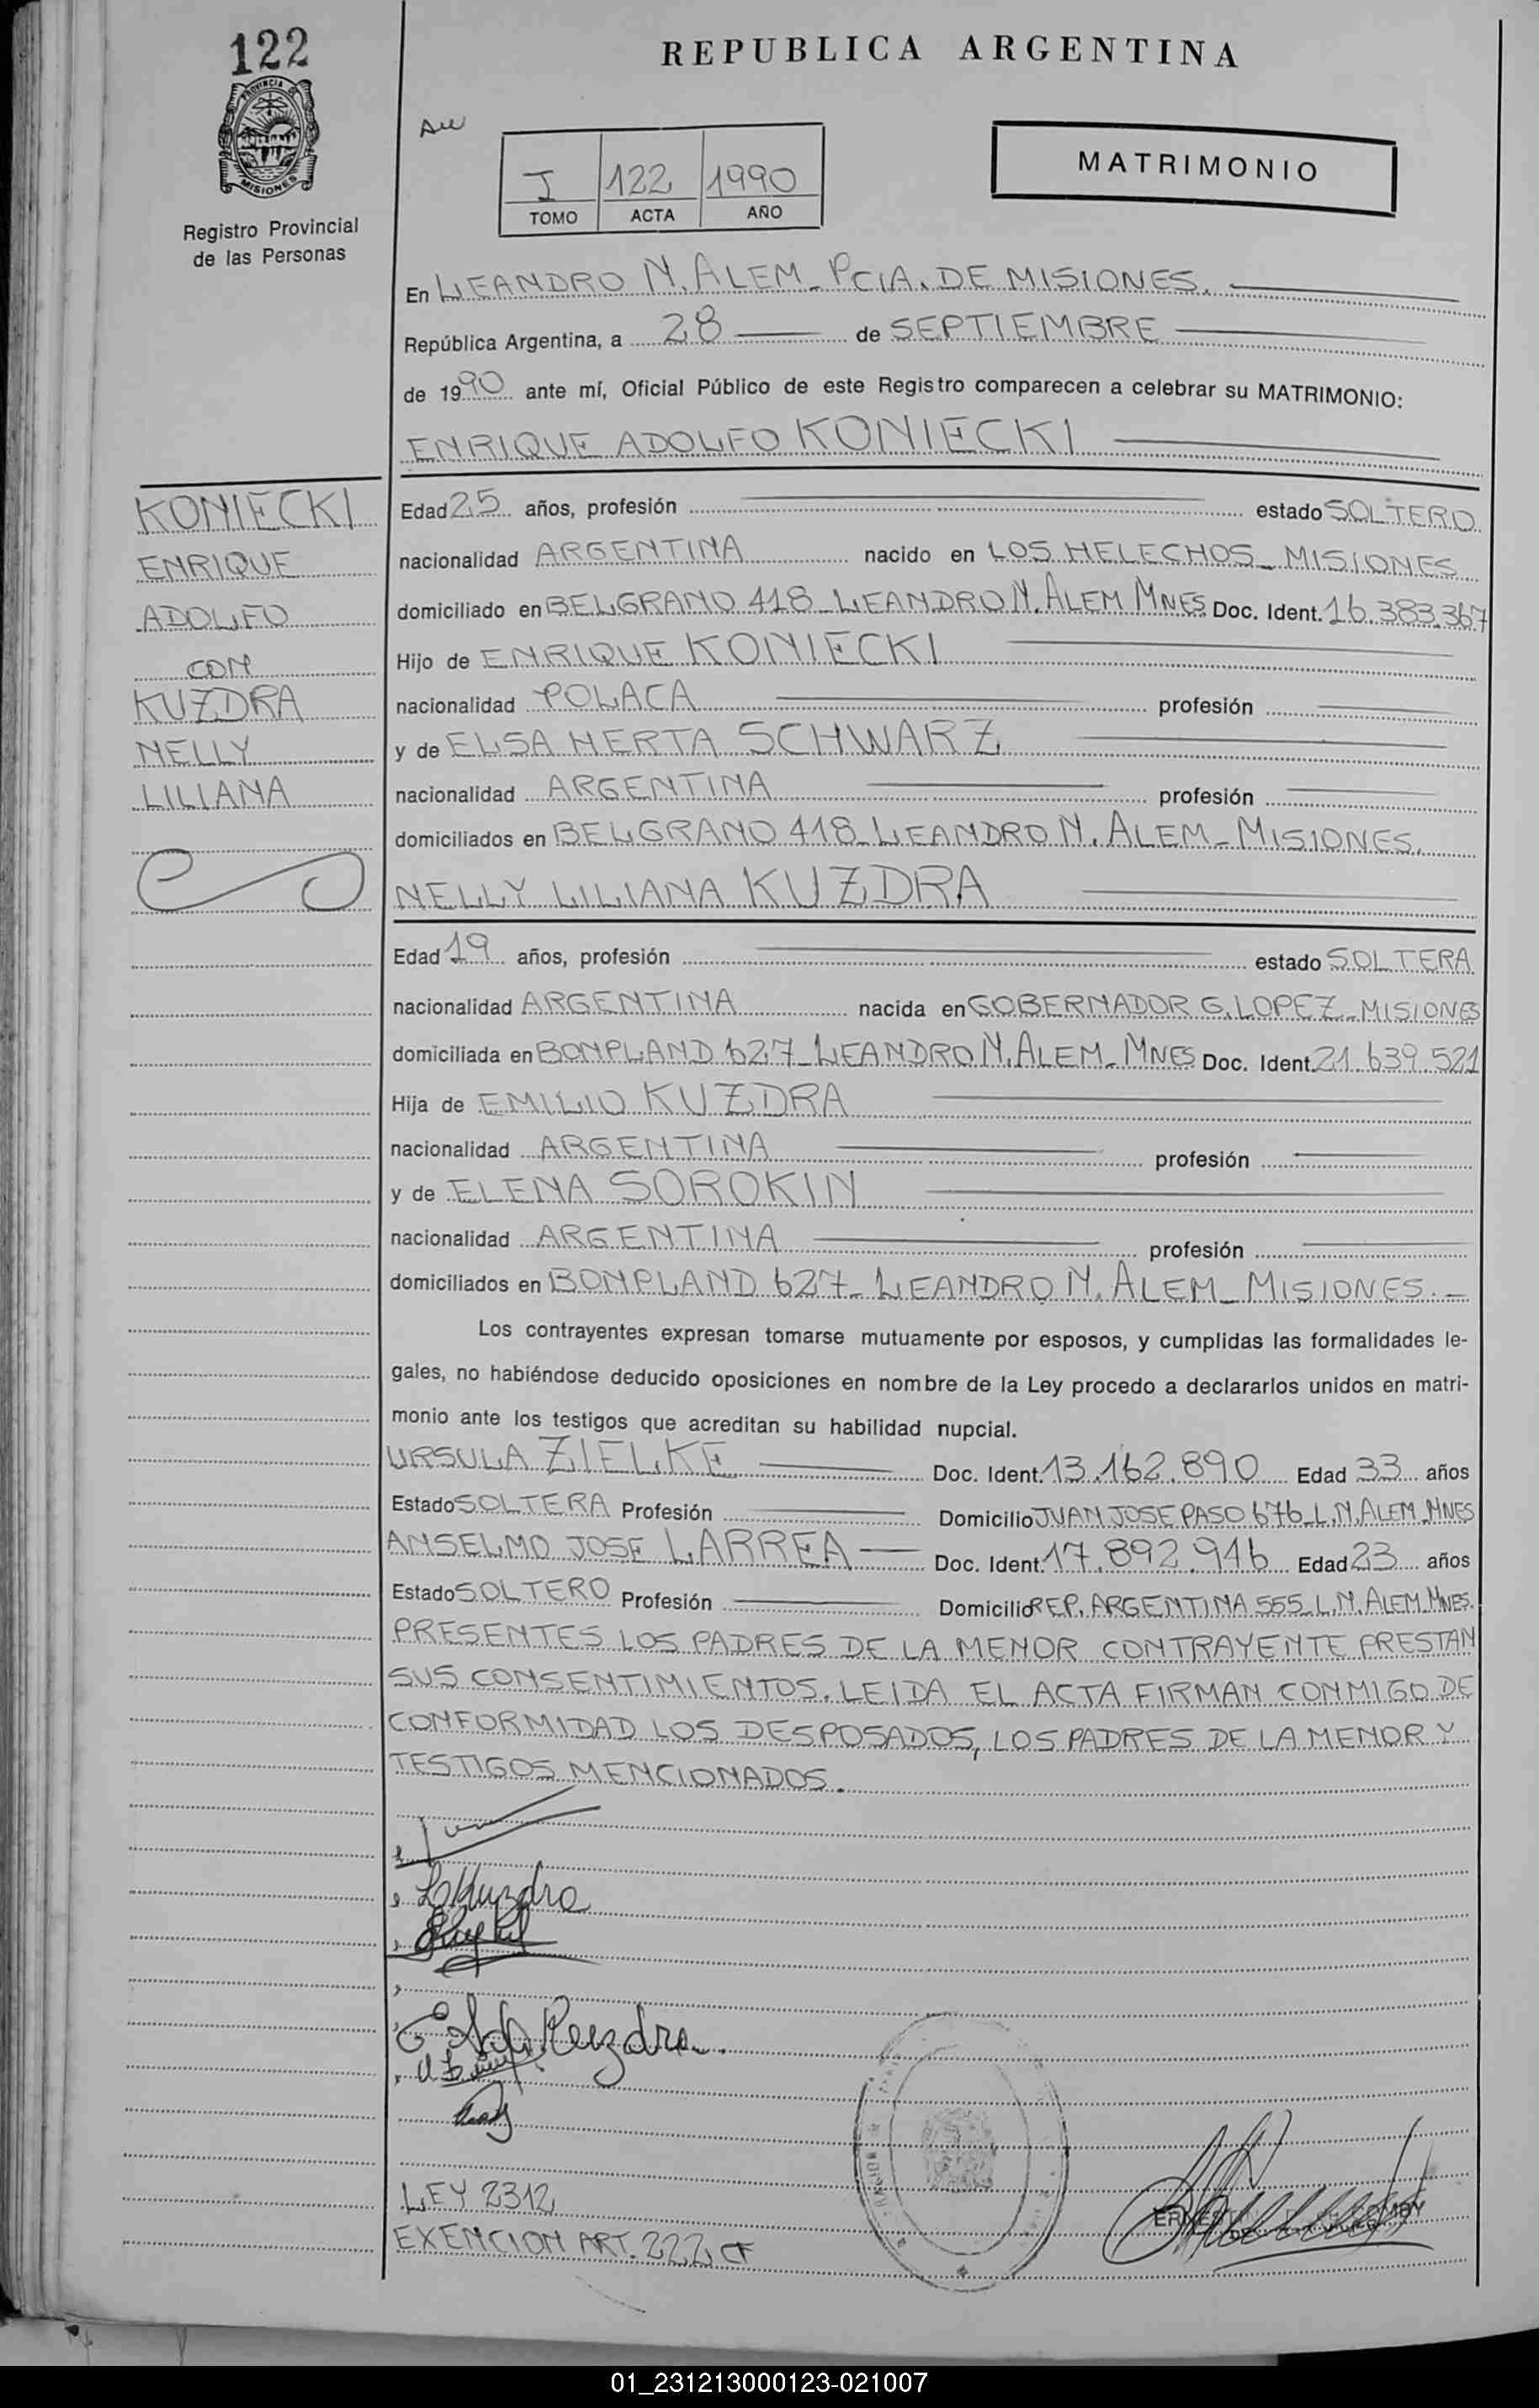 122
PROVINCIA DE
MISIONES
Registro Provincial
de las Personas
REPUBLICA ARGENTINA
I 122 1990
TOMO ACTA AÑO
MATRIMONIO
En LEANDRO N. ALEM - PCIA. DE MISIONES.
República Argentina, a 28 de SEPTIEMBRE
de 1990 ante mí, Oficial Público de este Registro comparecen a celebrar su MATRIMONIO:
ENRIQUE ADOLFO KONIECKI
KONIECKI
ENRIQUE
ADOLFO
CON
KUZDRA
NELLY
LILIANA
Edad 25 años, profesión estado SOLTERO
nacionalidad ARGENTINA nacido en LOS HELECHOS - MISIONES
domiciliado en BELGRANO 418 - LEANDRO N. ALEM MNES Doc. Ident. 16.383.367
Hijo de ENRIQUE KONIECKI
nacionalidad POLACA profesión
y de ELSA HERTA SCHWARZ
nacionalidad ARGENTINA profesión
domiciliados en BELGRANO 418 - LEANDRO N. ALEM - MISIONES.
NELLY LILIANA KUZDRA
Edad 19 años, profesión estado SOLTERA
nacionalidad ARGENTINA nacida en GOBERNADOR G. LOPEZ - MISIONES
domiciliada en BONPLAND 627 - LEANDRO N. ALEM - MNES Doc. Ident. 21.639.521
Hija de EMILIO KUZDRA
nacionalidad ARGENTINA profesión
y de ELENA SOROKIN
nacionalidad ARGENTINA profesión
domiciliados en BONPLAND 627 - LEANDRO N. ALEM - MISIONES. -
Los contrayentes expresan tomarse mutuamente por esposos, y cumplidas las formalidades le-
gales, no habiéndose deducido oposiciones en nombre de la Ley procedo a declararlos unidos en matri-
monio ante los testigos que acreditan su habilidad nupcial.
URSULA ZIELKE Doc. Ident. 13.162.890 Edad 33 años
Estado SOLTERA Profesión Domicilio JUAN JOSE PASO 676 - L.N. ALEM - MNES
ANSELMO JOSE LARREA Doc. Ident. 17.892.946 Edad 23 años
Estado SOLTERO Profesión Domicilio REP. ARGENTINA 555 - L.N. ALEM - MNES.
PRESENTES LOS PADRES DE LA MENOR CONTRAYENTE PRESTAN
SUS CONSENTIMIENTOS. LEIDA EL ACTA FIRMAN CONMIGO DE
CONFORMIDAD LOS DESPOSADOS, LOS PADRES DE LA MENOR Y
TESTIGOS MENCIONADOS.
Kuzdra
Kuzdra
LEY 2312
EXENCION ART. 222 CF
01_231213000123-021007